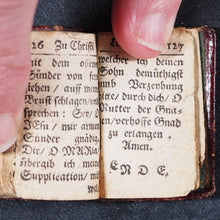 26 Zu Christi
mit dem offen
Sünder von fer
stehen / auff mein
Brust schlagen / und
sprechen: HErr
JEsu / mir armen
Sünder gnädig.
Dir / O MARia
übergib ich mein
Supplication / mit
wel-
127
welcher ich deinen
Sohn demüthigst
umb Verzeyhung
bitte / durch dich / O
Mutter der Gna-
den / verhoffe Gnad
zu erlangen.
Amen.
ENDE.